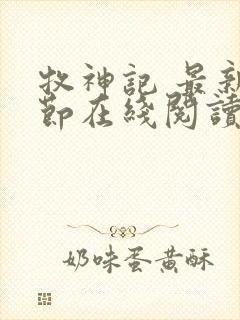 牧神記 最新
節在綫閱讀
奶味蛋黃酥